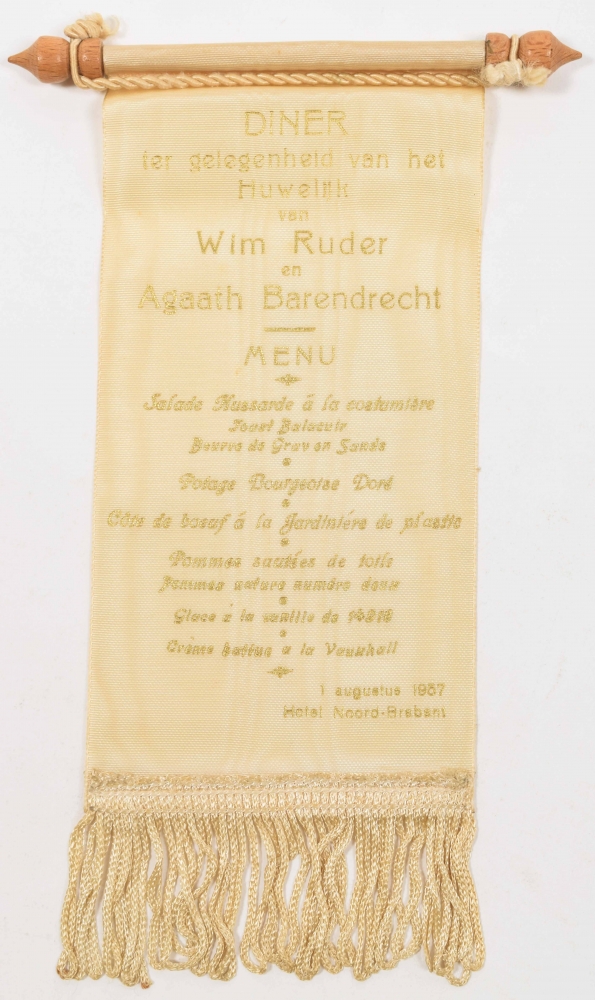 DINER
ter gelegenheid van het
Huwelijk
van
Wim Ruder
en
Agaath Barendrecht
MENU
Salade Hussarde á la costumière
Toast
Beurre de Grav en Sande
Potage Bourgeoise Doré
Côte de boeuf á la Jardiniére de plastic
Pommes sautées de toile
Pommes nature numéro deux
Glace á la vanille de
Crème battue a la Vauxhall
1 augustus 1937
Hotel Noord-Brabant